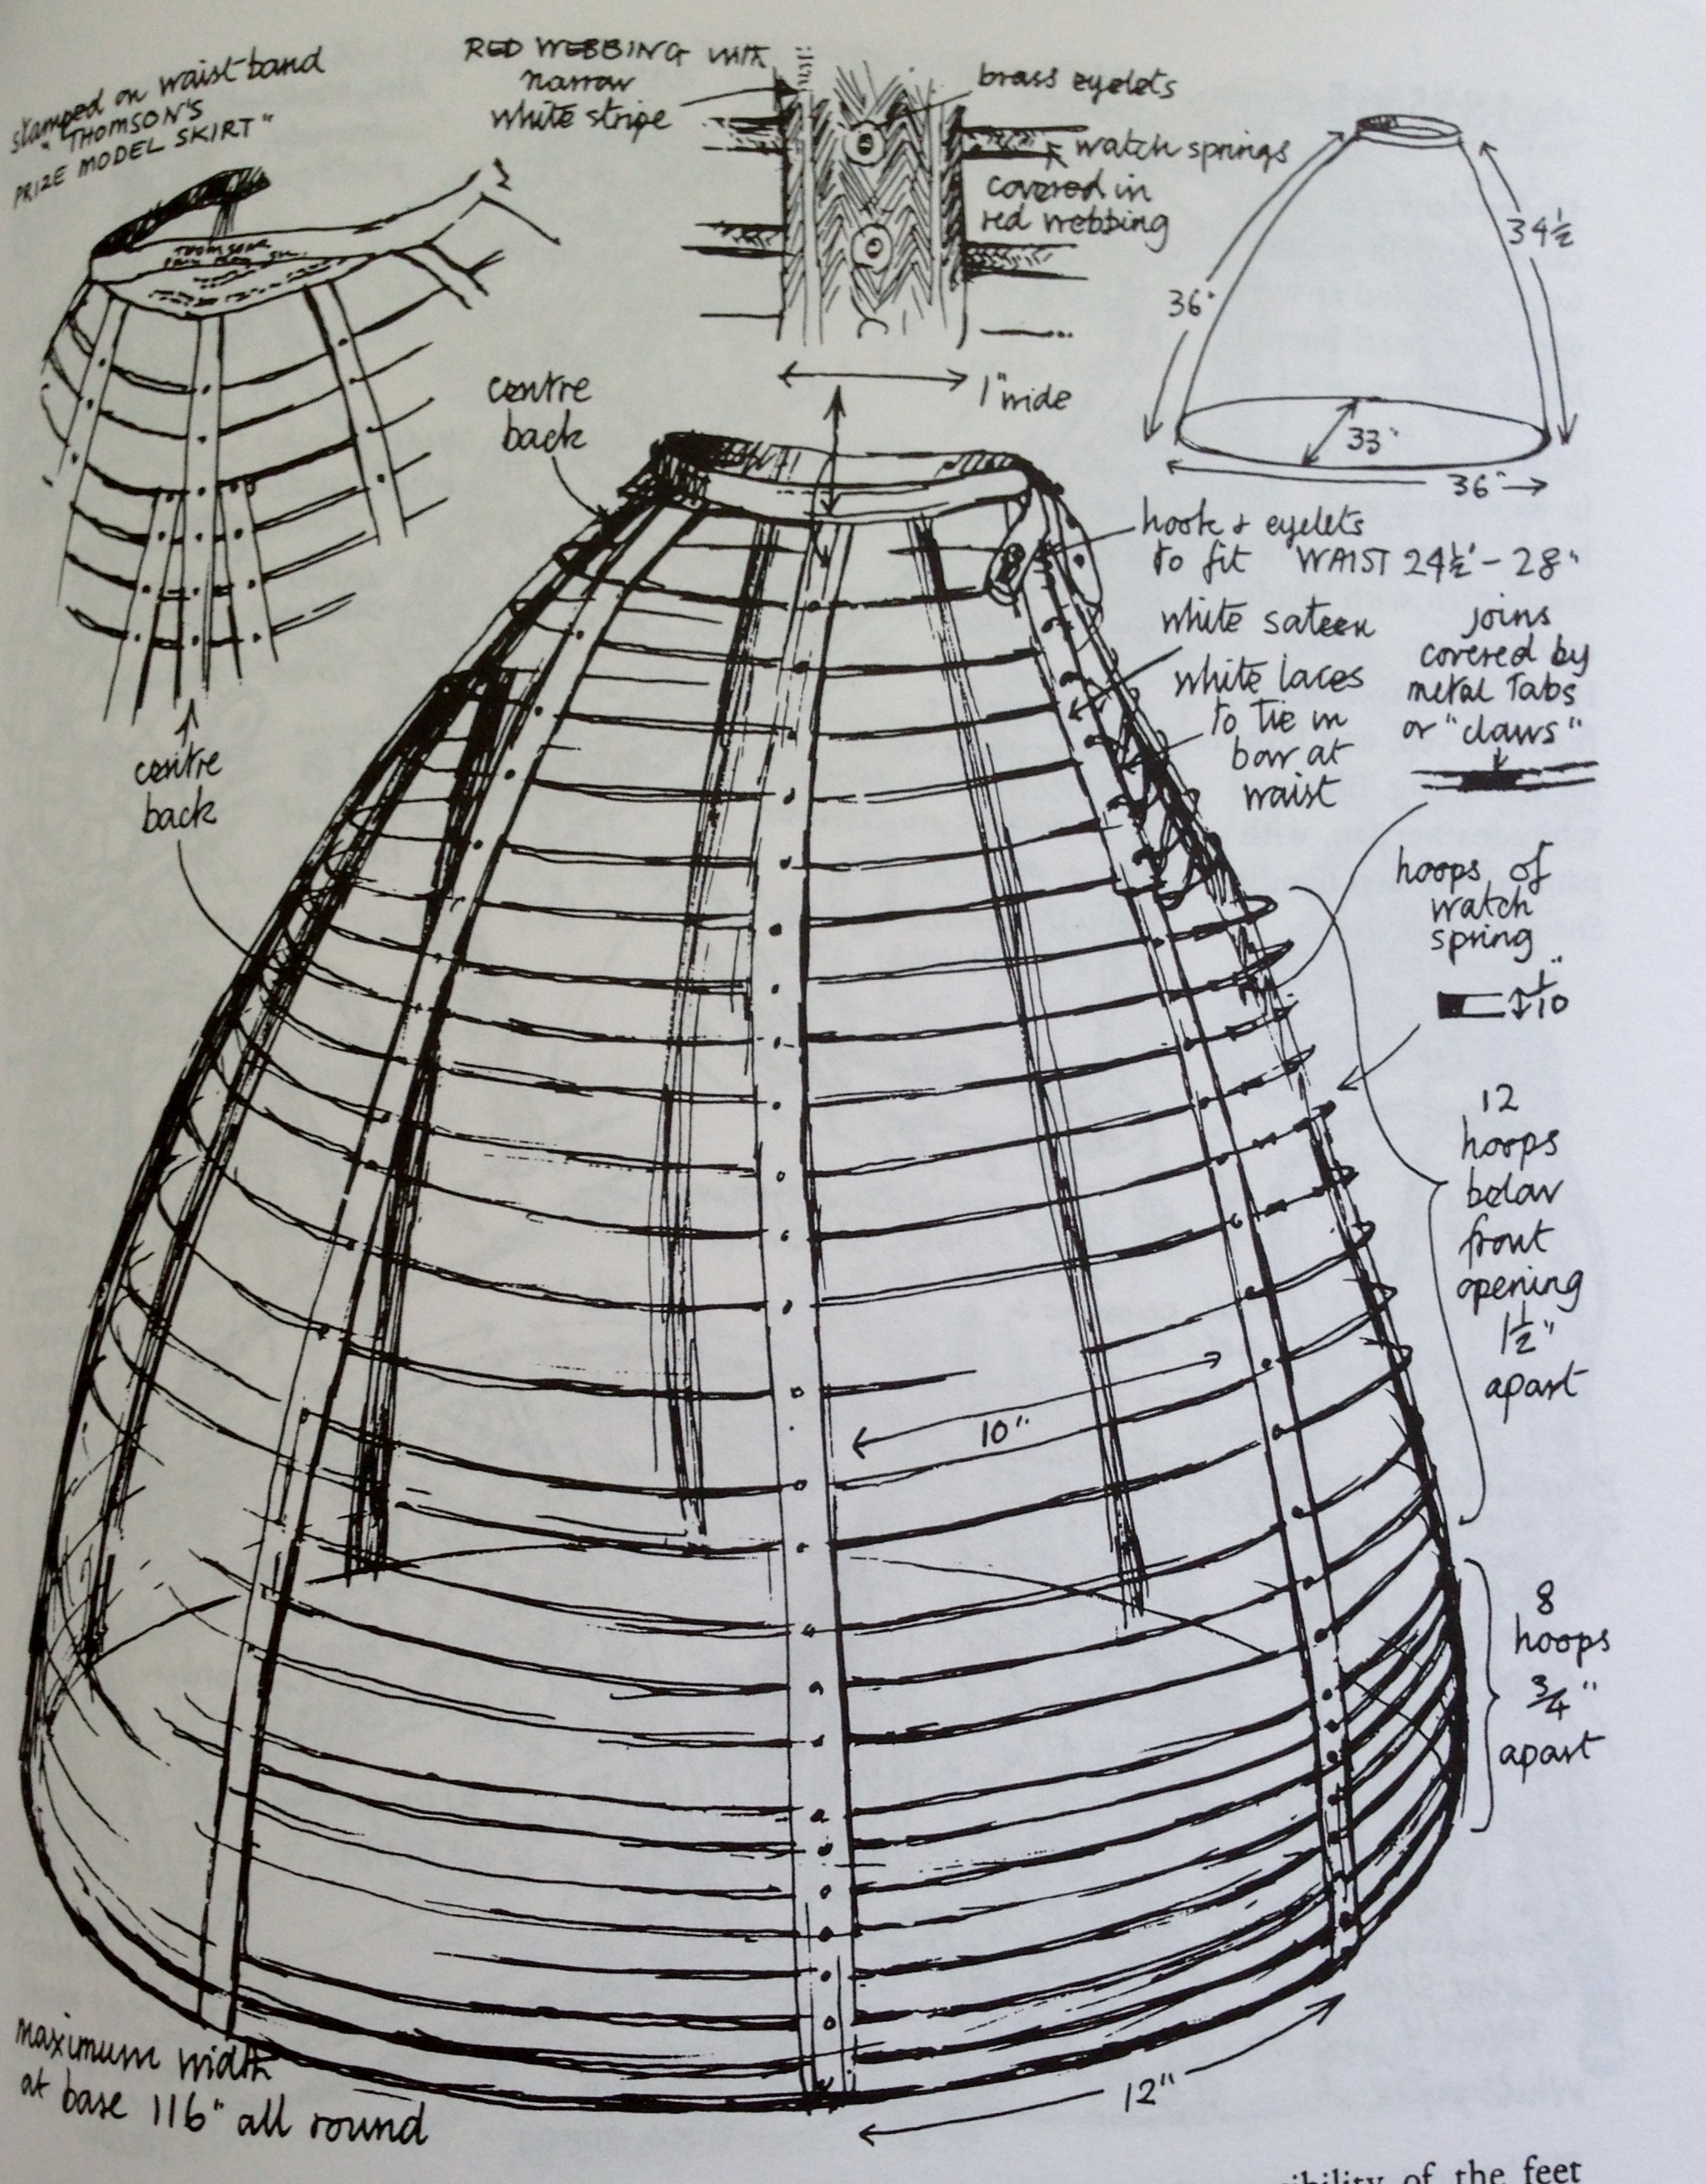 stamped on waist band
"THOMSON'S
PRIZE MODEL SKIRT"
THOMSON
RED WEBBING WITH
narrow
white stripe
brass eyelets
watch springs
covered in
red webbing
1" wide
36"
34½
33"
36"
centre
back
centre
back
hook & eyelets
to fit WAIST 24½" - 28"
white sateen
white laces
to tie in
bow at
waist
joins
covered by
metal Tabs
or "claws"
hoops of
watch
spring
1/10"
12
hoops
below
front
opening
1½"
apart
10"
8
hoops
¾"
apart
12"
maximum width
at base 116" all round
of the feet